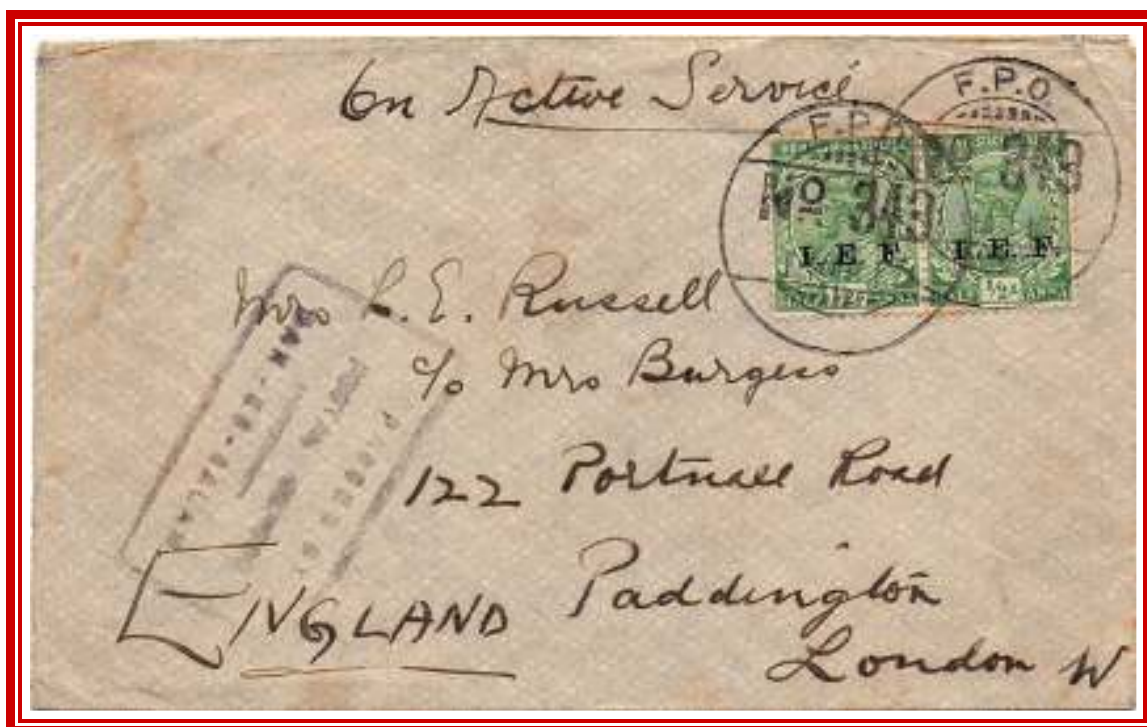 On Active Service
F.P.O.
No 349
F.P.O.
No 349
I.E.F.
I.E.F.
½A
Mrs L. E. Russell
c/o Mrs Burgess
122 Portnall Road
Paddington
London W
ENGLAND
PASSED BY
DAR-ES-SALAAM